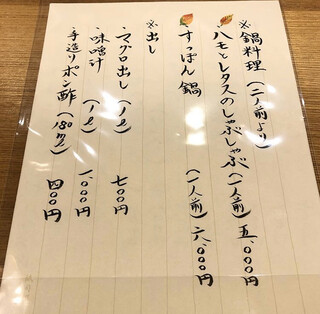 ※鍋料理（二人前より）
ハモとレタスのしゃぶしゃぶ（一人前）五、〇〇〇円
すっぽん鍋（一人前）六、〇〇〇円
※出し
マグロ出し（1ℓ）七〇〇円
味噌汁（1ℓ）一、〇〇〇円
手造りポン酢（180mℓ）四〇〇円